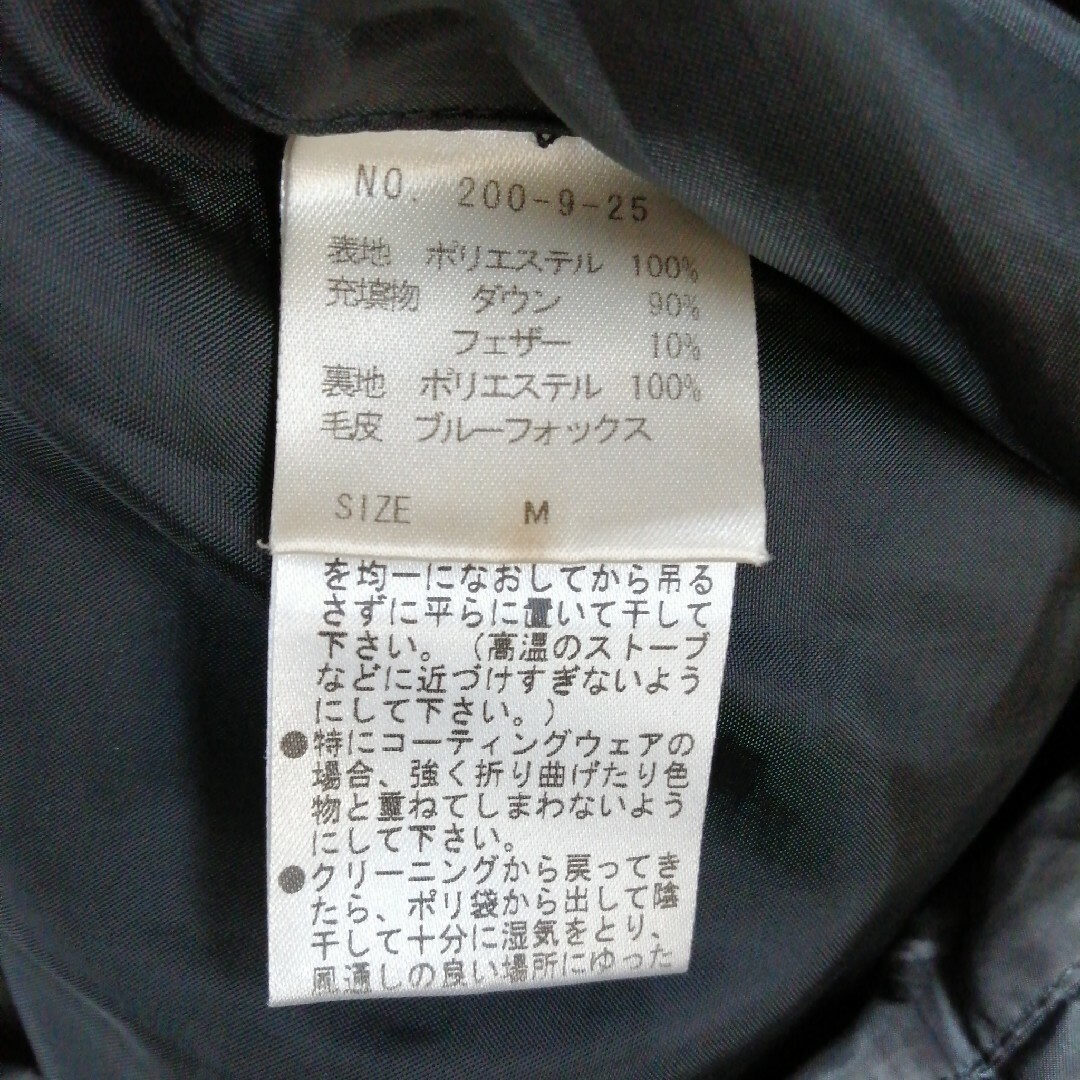 NO. 200-9-25
表地 ポリエステル 100%
充填物 ダウン 90%
フェザー 10%
裏地 ポリエステル 100%
毛皮 ブルーフォックス
SIZE M
を均一になおしてから吊る
さずに平らに置いて干して
下さい。(高温のストーブ
などに近づけすぎないよう
にして下さい。)
●特にコーティングウェアの
場合、強く折り曲げたり色
物と重ねてしまわないよう
にして下さい。
●クリーニングから戻ってき
たら、ポリ袋から出して陰
干して十分に湿気をとり、
風通しの良い場所にゆった